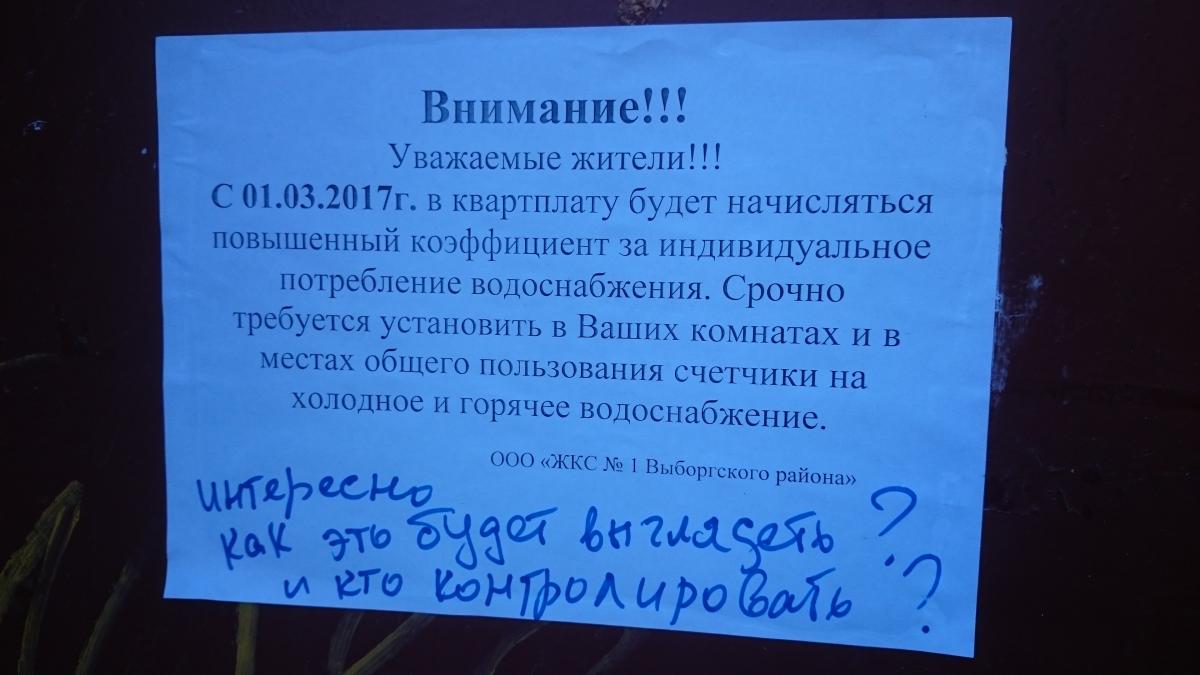 Внимание!!!
Уважаемые жители!!!
С 01.03.2017г. в квартплату будет начисляться
повышенный коэффициент за индивидуальное
потребление водоснабжения. Срочно
требуется установить в Ваших комнатах и в
местах общего пользования счетчики на
холодное и горячее водоснабжение.
ООО «ЖКС № 1 Выборгского района»
интересно
как это будет выглядеть ?
и кто контролировать ?